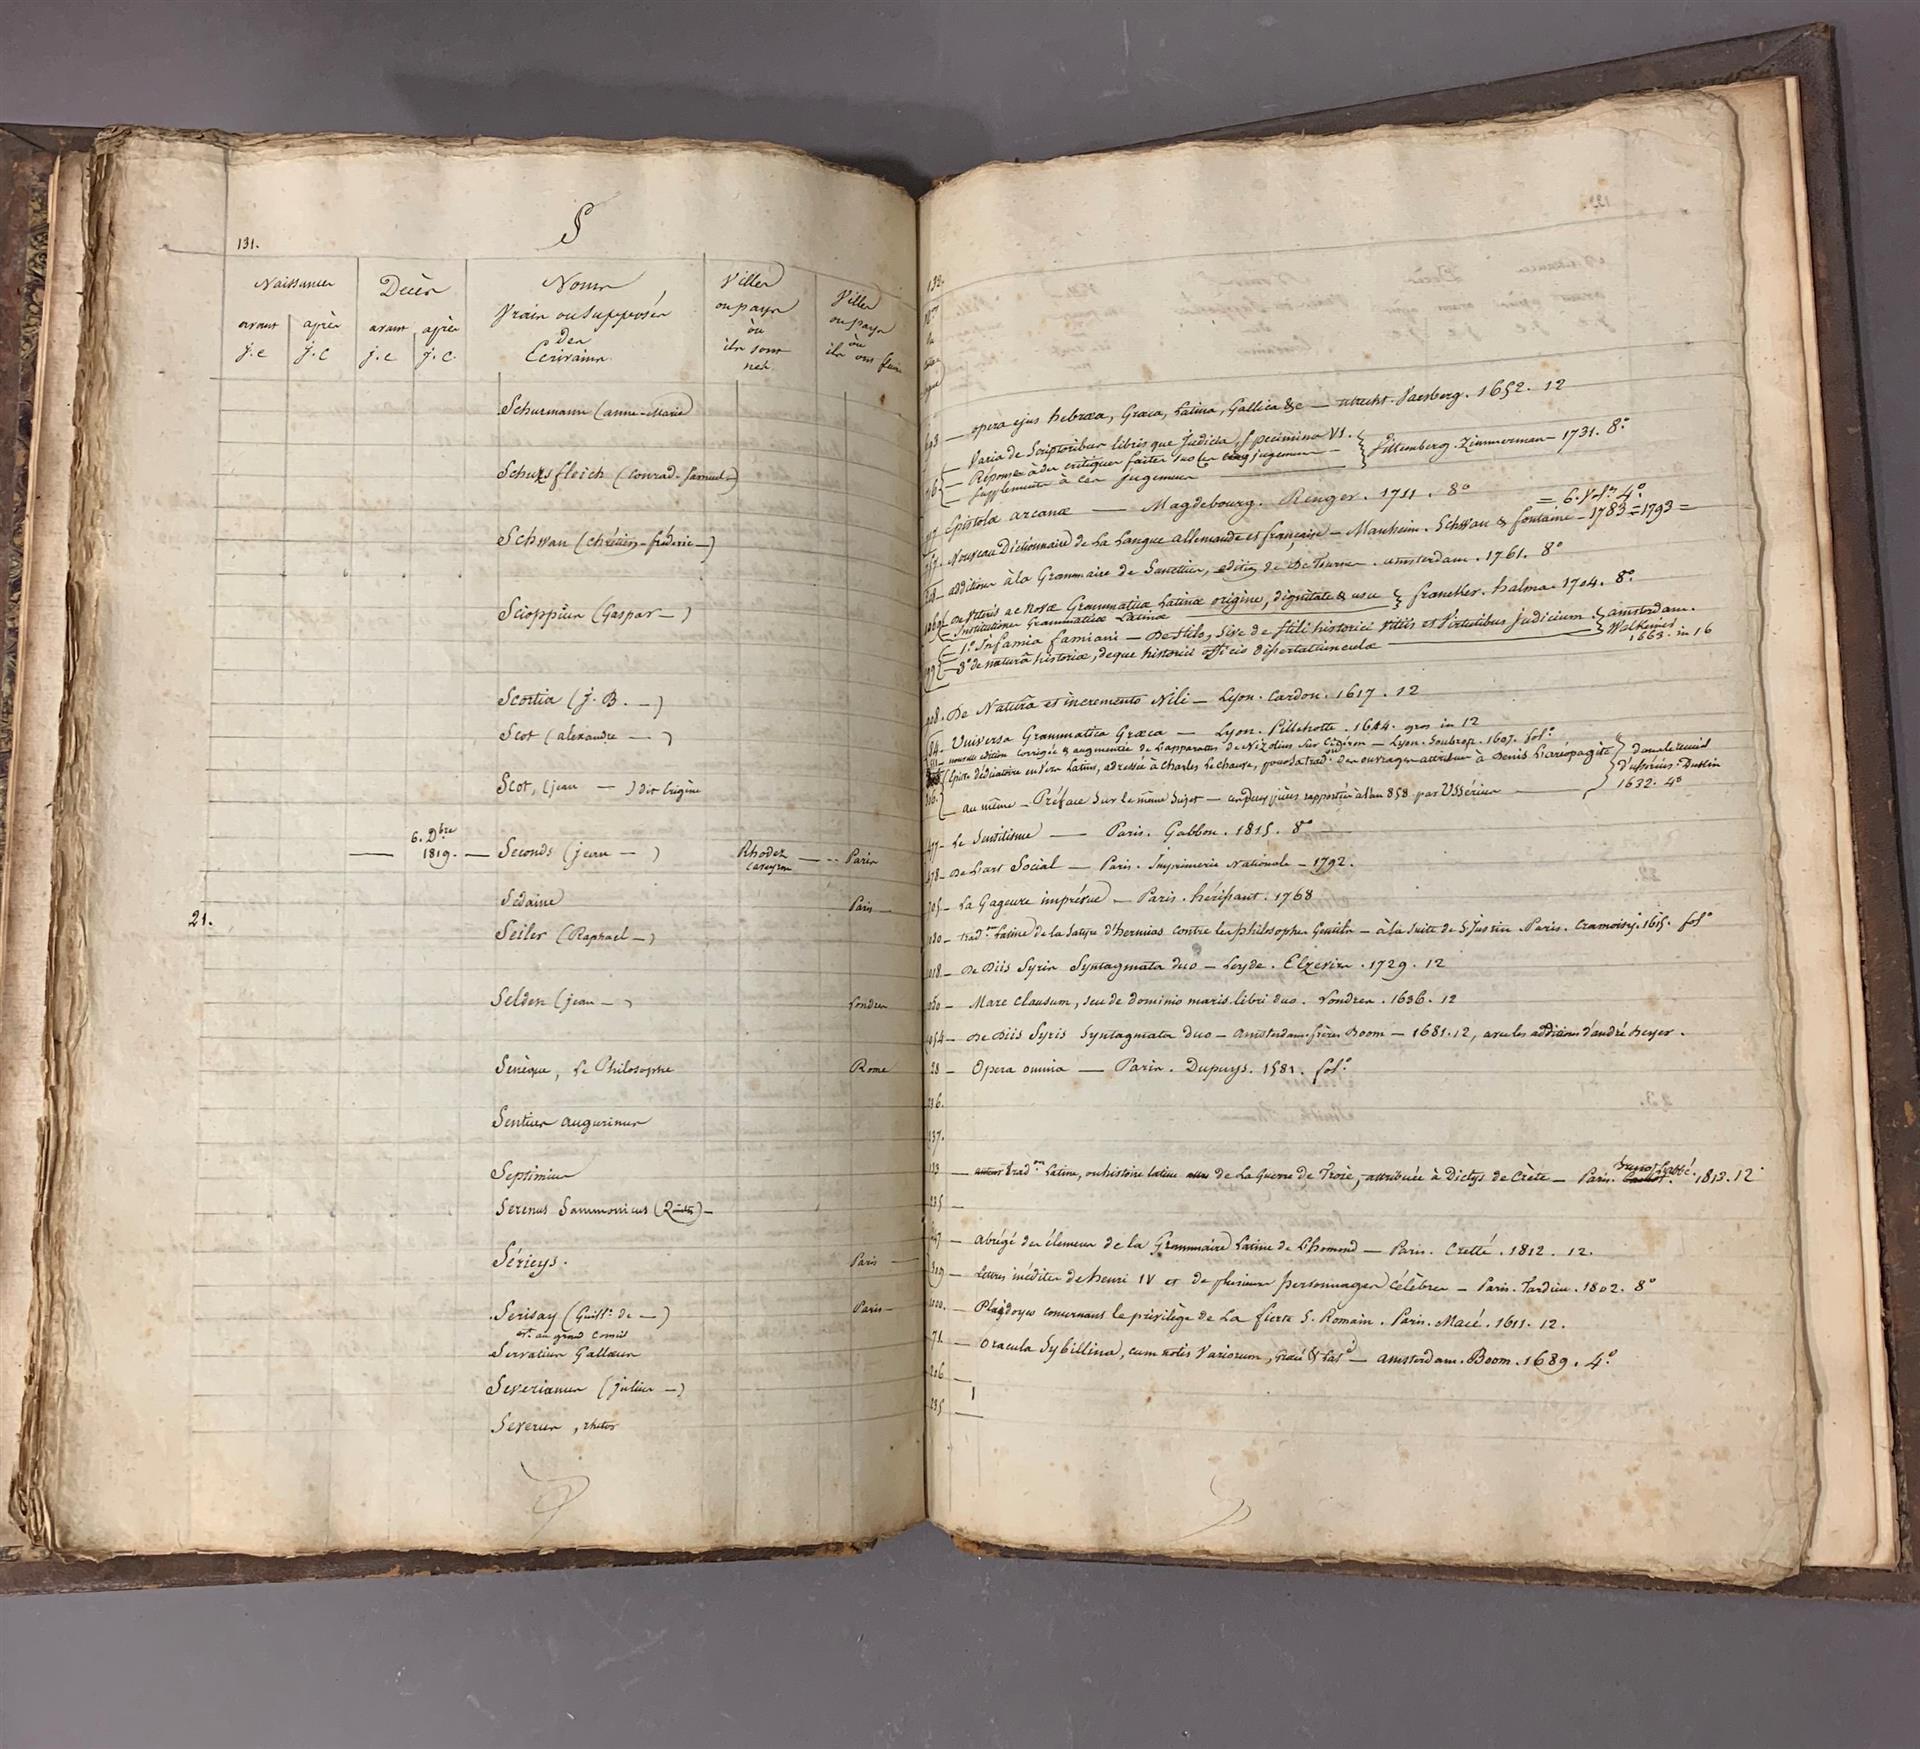 131.
S
Naissances
Décès
Noms
Vrais ou Supposés
des
Ecrivains
Villes
ou pays
où
ils sont
nés
Villes
ou pays
où
ils ont
avant
j.c
après
j.c
avant
j.c
après
j.c.
Schurmann (anne-Marie)
Schurzfleich (Conrad-Samuel-)
Schwan (chrétien-fréderic-)
Scioppius (Gaspar-)
Scortia (j. B. -)
Scot (alexandre -)
Scot, (jean -) dit Erigène
6. Dbre
1819. Seconds (jean -) Rhodez Paris
aveyron
Sédaine Paris
21.
Seiler (Raphael-)
Selden (jean -) Londres
Sénèque, le Philosophe Rome
Sentius augurinus
Septimius
Serenus Sammonicus
Sérieys. Paris
Serisay (de -) Paris
au grand conseil
Servatius Gallæus
Severianus (julius -)
Severus, rhetor
132.
opera ejus hebræa, Græca, Latina, Gallica &c - utrecht. Vaesberg. 1652. 12
Varia de Scriptoribus librisque judicia, Specimina VI.
Réponses à des critiques faites sur ces jugemens - Vittemberg. Zimmerman - 1731. 8°.
Supplemens à ces jugemens
Epistolæ arcanæ - Magdebourg. Renger. 1711. 8°
= 6. Vol. 4°.
Nouveau Dictionnaire de la langue allemande et française - Manheim. Schwan & fontaine - 1783 = 1793 =
additions à la Grammaire de Sanctius, - amsterdam. 1761. 8°
De Veteris ac Novæ Grammaticæ Latinæ origine, dignitate & usu - franeker. halma. 1704. 8°.
Institutiones Grammaticæ Latinæ
1.° Infamia famiani - De Stilo, Sive de Stili historici Vitiis et Virtutibus judicium. amsterdam.
3° de naturâ historiæ, deque historici officio dissertatiunculæ
1663. in 16
De Naturâ et incremento Nili - Lyon. Cardon. 1617. 12
Universa Grammatica Græca - Lyon. Pillehotte. 1614. gros in 12
nouvelle edition corrigée & augmentée de l'apparatus de Nizolius sur Cicéron - Lyon. 1607. fol°
Epitre dédicatoire en Vers latins, adressée à Charles le chauve, pour la trad.on des ouvrages attribués à Denis l'aréopagite dans le recueil
au même - Préface sur le même sujet - ces deux pièces rapportées à l'an 858 par Ussérius d'ussérius. Dublin
1632. 4°
Paris. Gabbon. 1815. 8°
478 - De l'art Social - Paris. Imprimerie Nationale - 1792.
La Gageure imprévue - Paris. hérissant. 1768
trad.on latine de la Satyre d'hermias contre les philosophes Gentils - à la suite de S. Justin. Paris. Cramoisy. 1615. fol°
De Diis Syris Syntagmata duo - Leyde. Elzevirs. 1729. 12
Mare clausum, seu de dominio maris libri duo. Londres. 1636. 12
De Diis Syris Syntagmata duo - amsterdam. frères Boom - 1681. 12, avec les additions d'andré beyer.
Opera omnia - Paris. Dupuys. 1581. fol.°
trad.on Latine, ou histoire latine de la Guerre de Troie, attribuée à Dictys de Crète - Paris. 1813. 12
Abrégé des élémens de la Grammaire latine de Lhomond - Paris. Cretté. 1812. 12.
Lettres inédites de henri IV et de plusieurs personnages célèbres - Paris. Tardieu. 1802. 8°
Plaidoyes concernans le privilège de la fierte S. Romain. Paris. Macé. 1611. 12.
71. - Oracula Sybillina, cum notis Variorum, - amsterdam. Boom. 1689. 4°